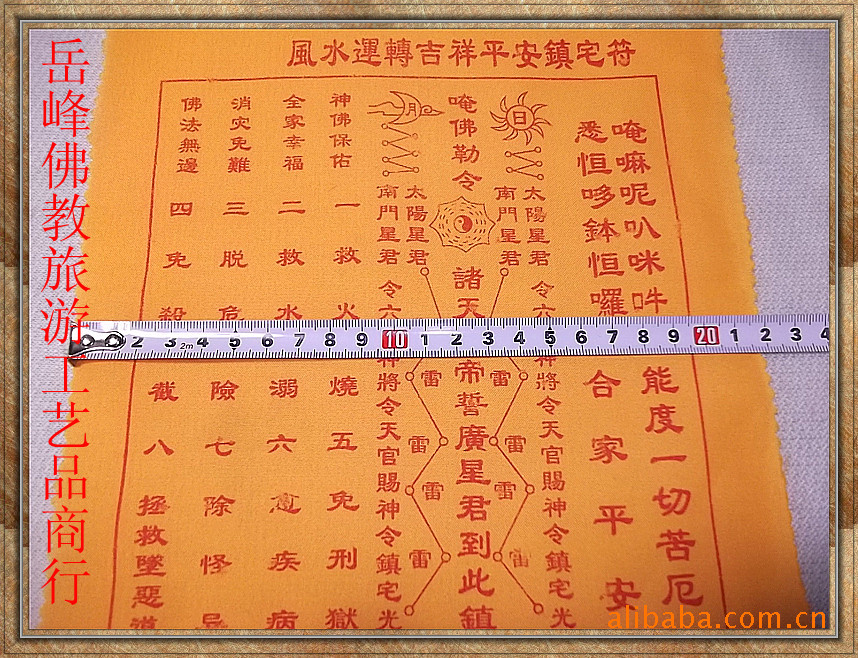 風水運轉吉祥平安鎮宅符
唵嘛呢叭咪吽
能度一切苦厄
悉怛哆鉢怛囉
合家平安
太陽星君
南門星君
日
令六
神將令天官賜神令鎮宅光
唵佛勒令
諸天
帝誓廣星君到此鎮
雷 雷
雷 雷
雷 雷
雷 雷
月
太陽星君
南門星君
令六
神將令天官賜神令鎮宅光
神佛保佑
一救火燒
五免刑獄
全家幸福
二救水溺
六愈疾病
消灾免難
三脱危險
七除怪
佛法無邊
四免殺截
八拯救墜惡道
2 3 2m 4 5 6 7 8 9 10 1 2 3 4 5 6 7 8 9 20 1 2 3 4
岳峰佛教旅游工艺品商行
alibaba.com.cn